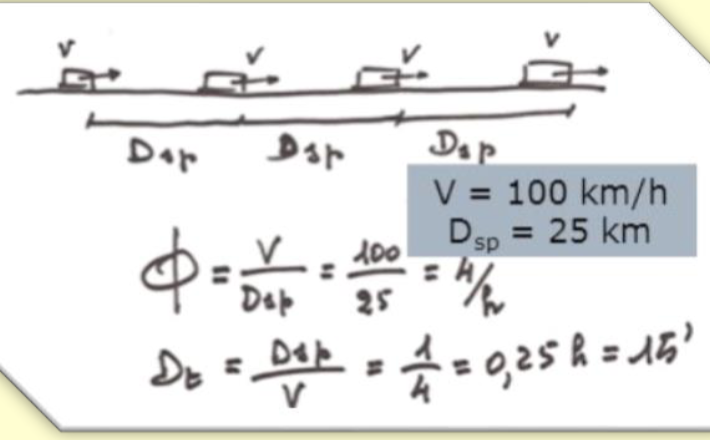 V V V V
Dsp Dsp Dsp
V = 100 km/h
Dsp = 25 km
Φ = V/Dsp = 100/25 = 4/h
Dt = Dsp/V = 1/4 = 0,25 h = 15'